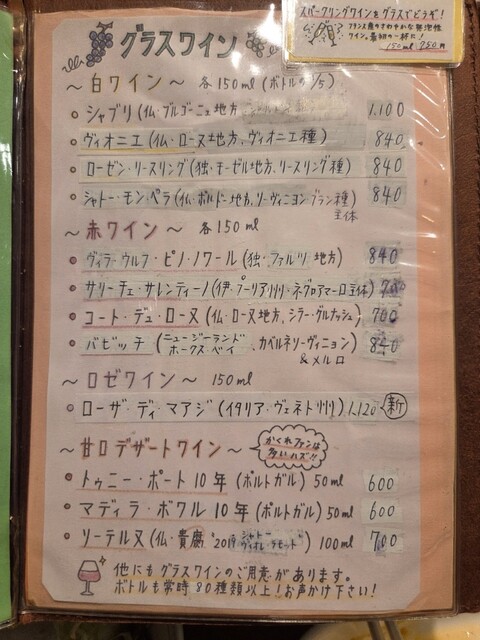 スパークリングワインをグラスでどうぞ!
フランス産のさわやかな発泡性
ワイン。最初の一杯に!
150ml 750円
グラスワイン
〜白ワイン〜 各150ml(ボトルの1/5)
シャブリ(仏・ブルゴーニュ地方 1,100
ヴィオニエ(仏・ローヌ地方、ヴィオニエ種) 840
ローゼン・リースリング(独・モーゼル地方、リースリング種) 840
シャトー・モン・ペラ(仏・ボルドー地方、ソーヴィニヨン・ブラン種主体 840
〜赤ワイン〜 各150ml
ヴィラ・ウルフ・ピノ・ノワール(独・ファルツ地方) 840
サリーチェ・サレンティーノ(伊・プーリア州・ネグロアマーロ主体)
コート・デュ・ローヌ(仏・ローヌ地方、シラー・グルナッシュ) 700
バビッチ(ニュージーランド ホークス・ベイ、カベルネソーヴィニョン 840
&メルロ
〜ロゼワイン〜 150ml
ローザ・ディ・マアジ(イタリア・ヴェネト州) 1,120 新
〜甘口デザートワイン〜 かくれファンは
多いハズ!!
トゥニー・ポート10年(ポルトガル)50ml 600
マディラ・ボワル10年(ポルトガル)50ml 600
ソーテルヌ(仏・貴腐 "2019 シャトー 100ml 700
他にもグラスワインのご用意があります。
ボトルも常時80種類以上!お声かけ下さい!